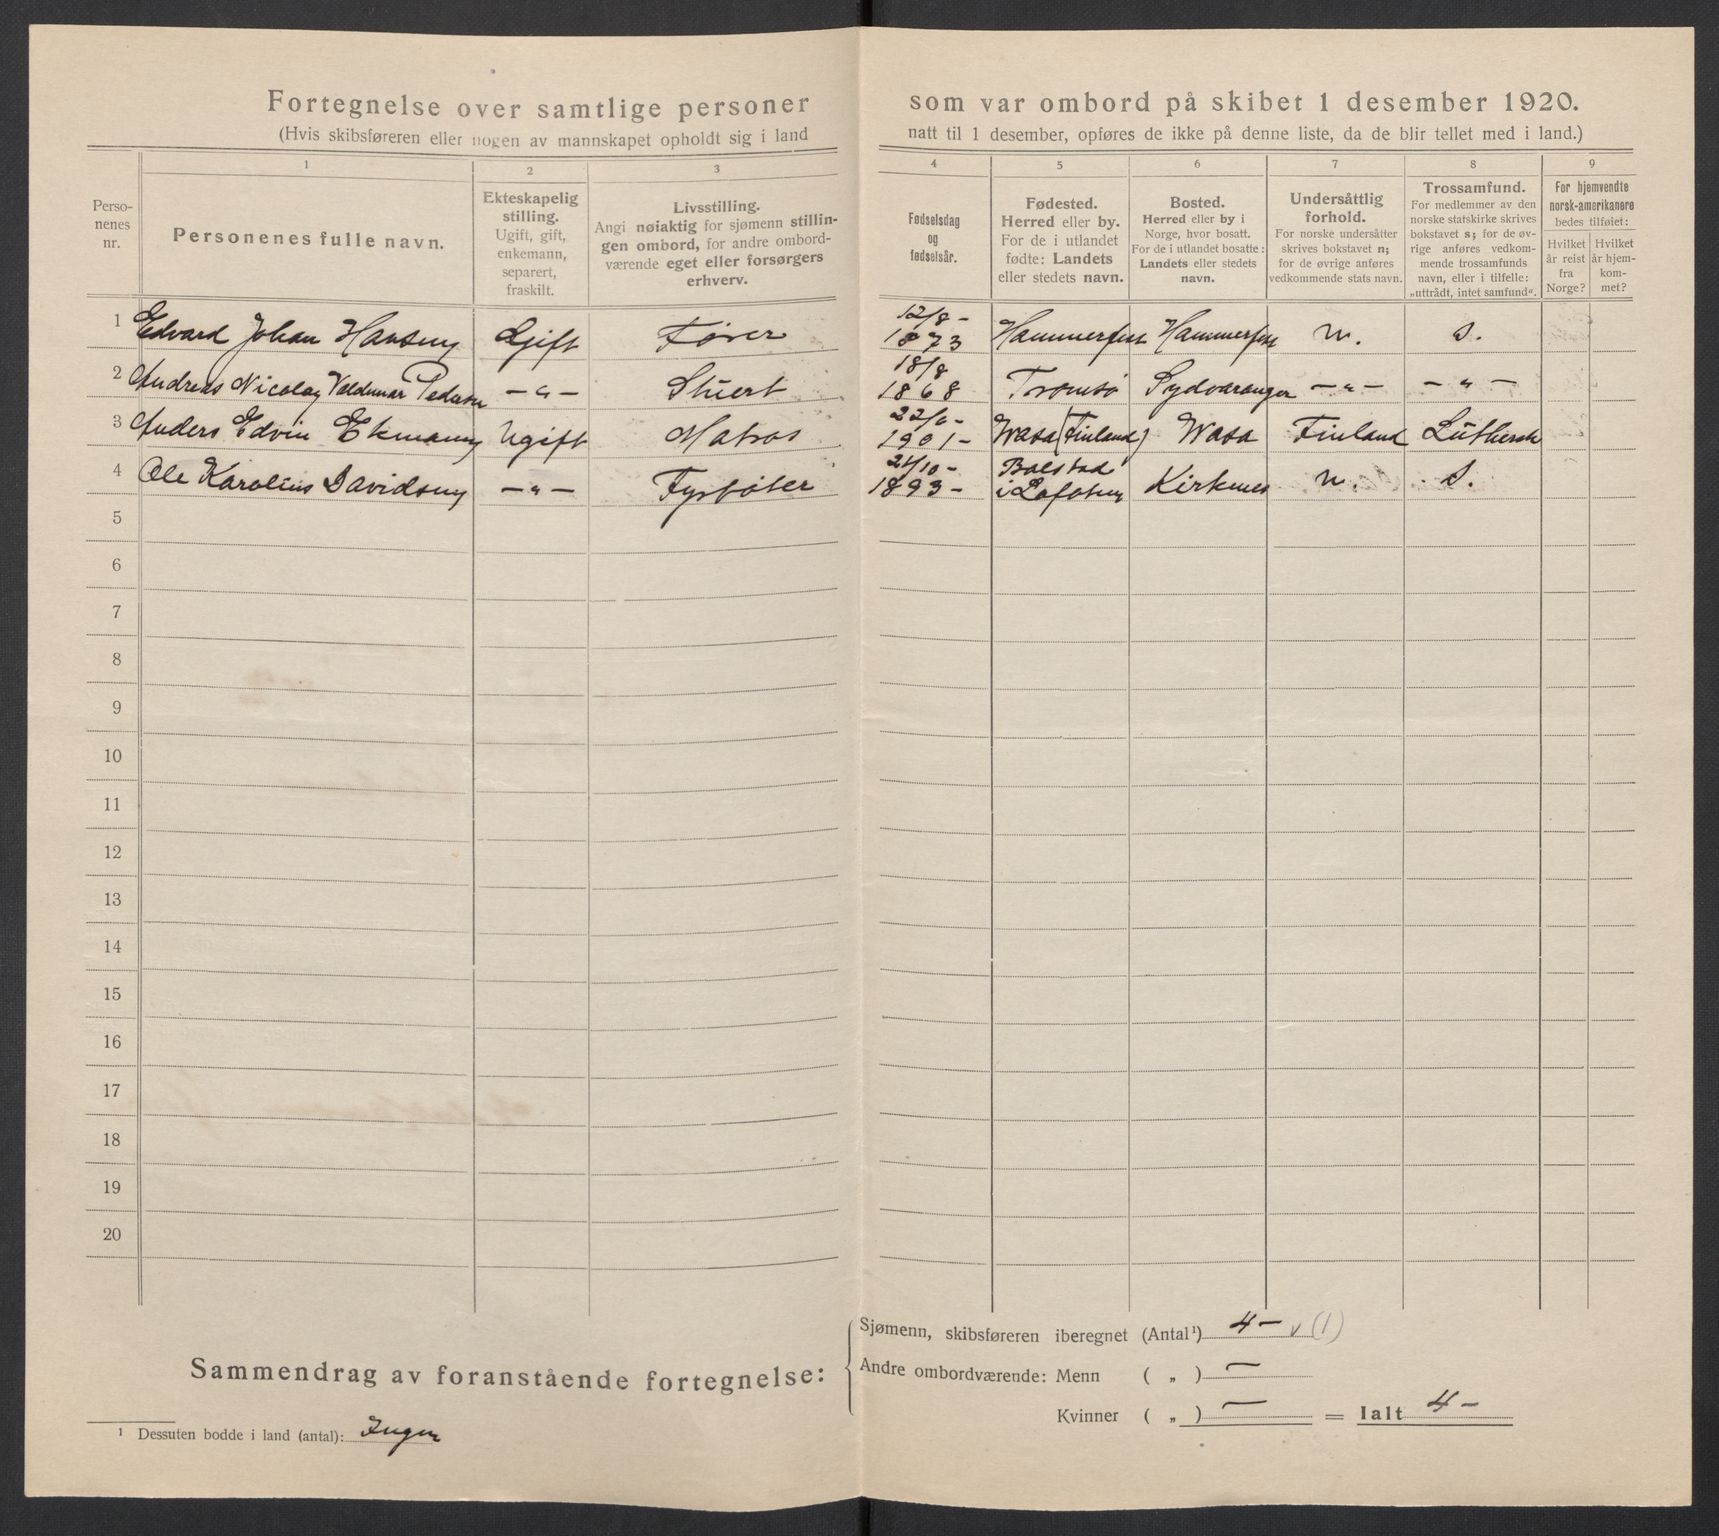 Fortegnelse over samtlige personer som var ombord på skibet 1 desember 1920.
(Hvis skibsføreren eller nogen av mannskapet opholdt sig i land natt til 1 desember, opføres de ikke på denne liste, da de blir tellet med i land.)
Personenes nr.
1
Personenes fulle navn.
2
Ekteskapelig stilling.
Ugift, gift, enkemann, separert, fraskilt.
3
Livsstilling.
Angi nøiaktig for sjømenn stillingen ombord, for andre ombordværende eget eller forsørgers erhverv.
4
Fødselsdag og fødselsår.
5
Fødested.
Herred eller by.
For de i utlandet fødte: Landets eller stedets navn.
6
Bosted.
Herred eller by i Norge, hvor bosatt.
For de i utlandet bosatte: Landets eller stedets navn.
7
Undersåttlig forhold.
For norske undersåtter skrives bokstavet n; for de øvrige anføres vedkommende stats navn.
8
Trossamfund.
For medlemmer av den norske statskirke skrives bokstavet s; for de øvrige anføres vedkommende trossamfunds navn, eller i tilfelle: „uttrådt, intet samfund".
9
For hjemvendte norsk-amerikanere bedes tilføiet:
Hvilket år reist fra Norge?
Hvilket år hjemkommet?
1 Edvard Johan Hansen Gift Fører 12/8- 1873 Hammerfest Hammerfest n. s.
2 Andreas Nicolay Valdemar Pedersen -"- Stuert 18/8 1868 Tromsø Sydvaranger -"- -"-
3 Anders Edvin Ekmann Ugift Matros 1901- Wasa (Finland) Wasa Finland Luthersk
4 Ole Karolius Davidsen -"- Fyrbøter 21/10- 1893- Balstad i Lofoten Kirkenes n. S.
5
6
7
8
9
10
11
12
13
14
15
16
17
18
19
20
Sammendrag av foranstående fortegnelse:
Sjømenn, skibsføreren iberegnet (Antal¹) 4- v (1)
Andre ombordværende: Menn ( „ ) —
Kvinner ( „ ) — = Ialt 4-
¹ Dessuten bodde i land (antal): Ingen